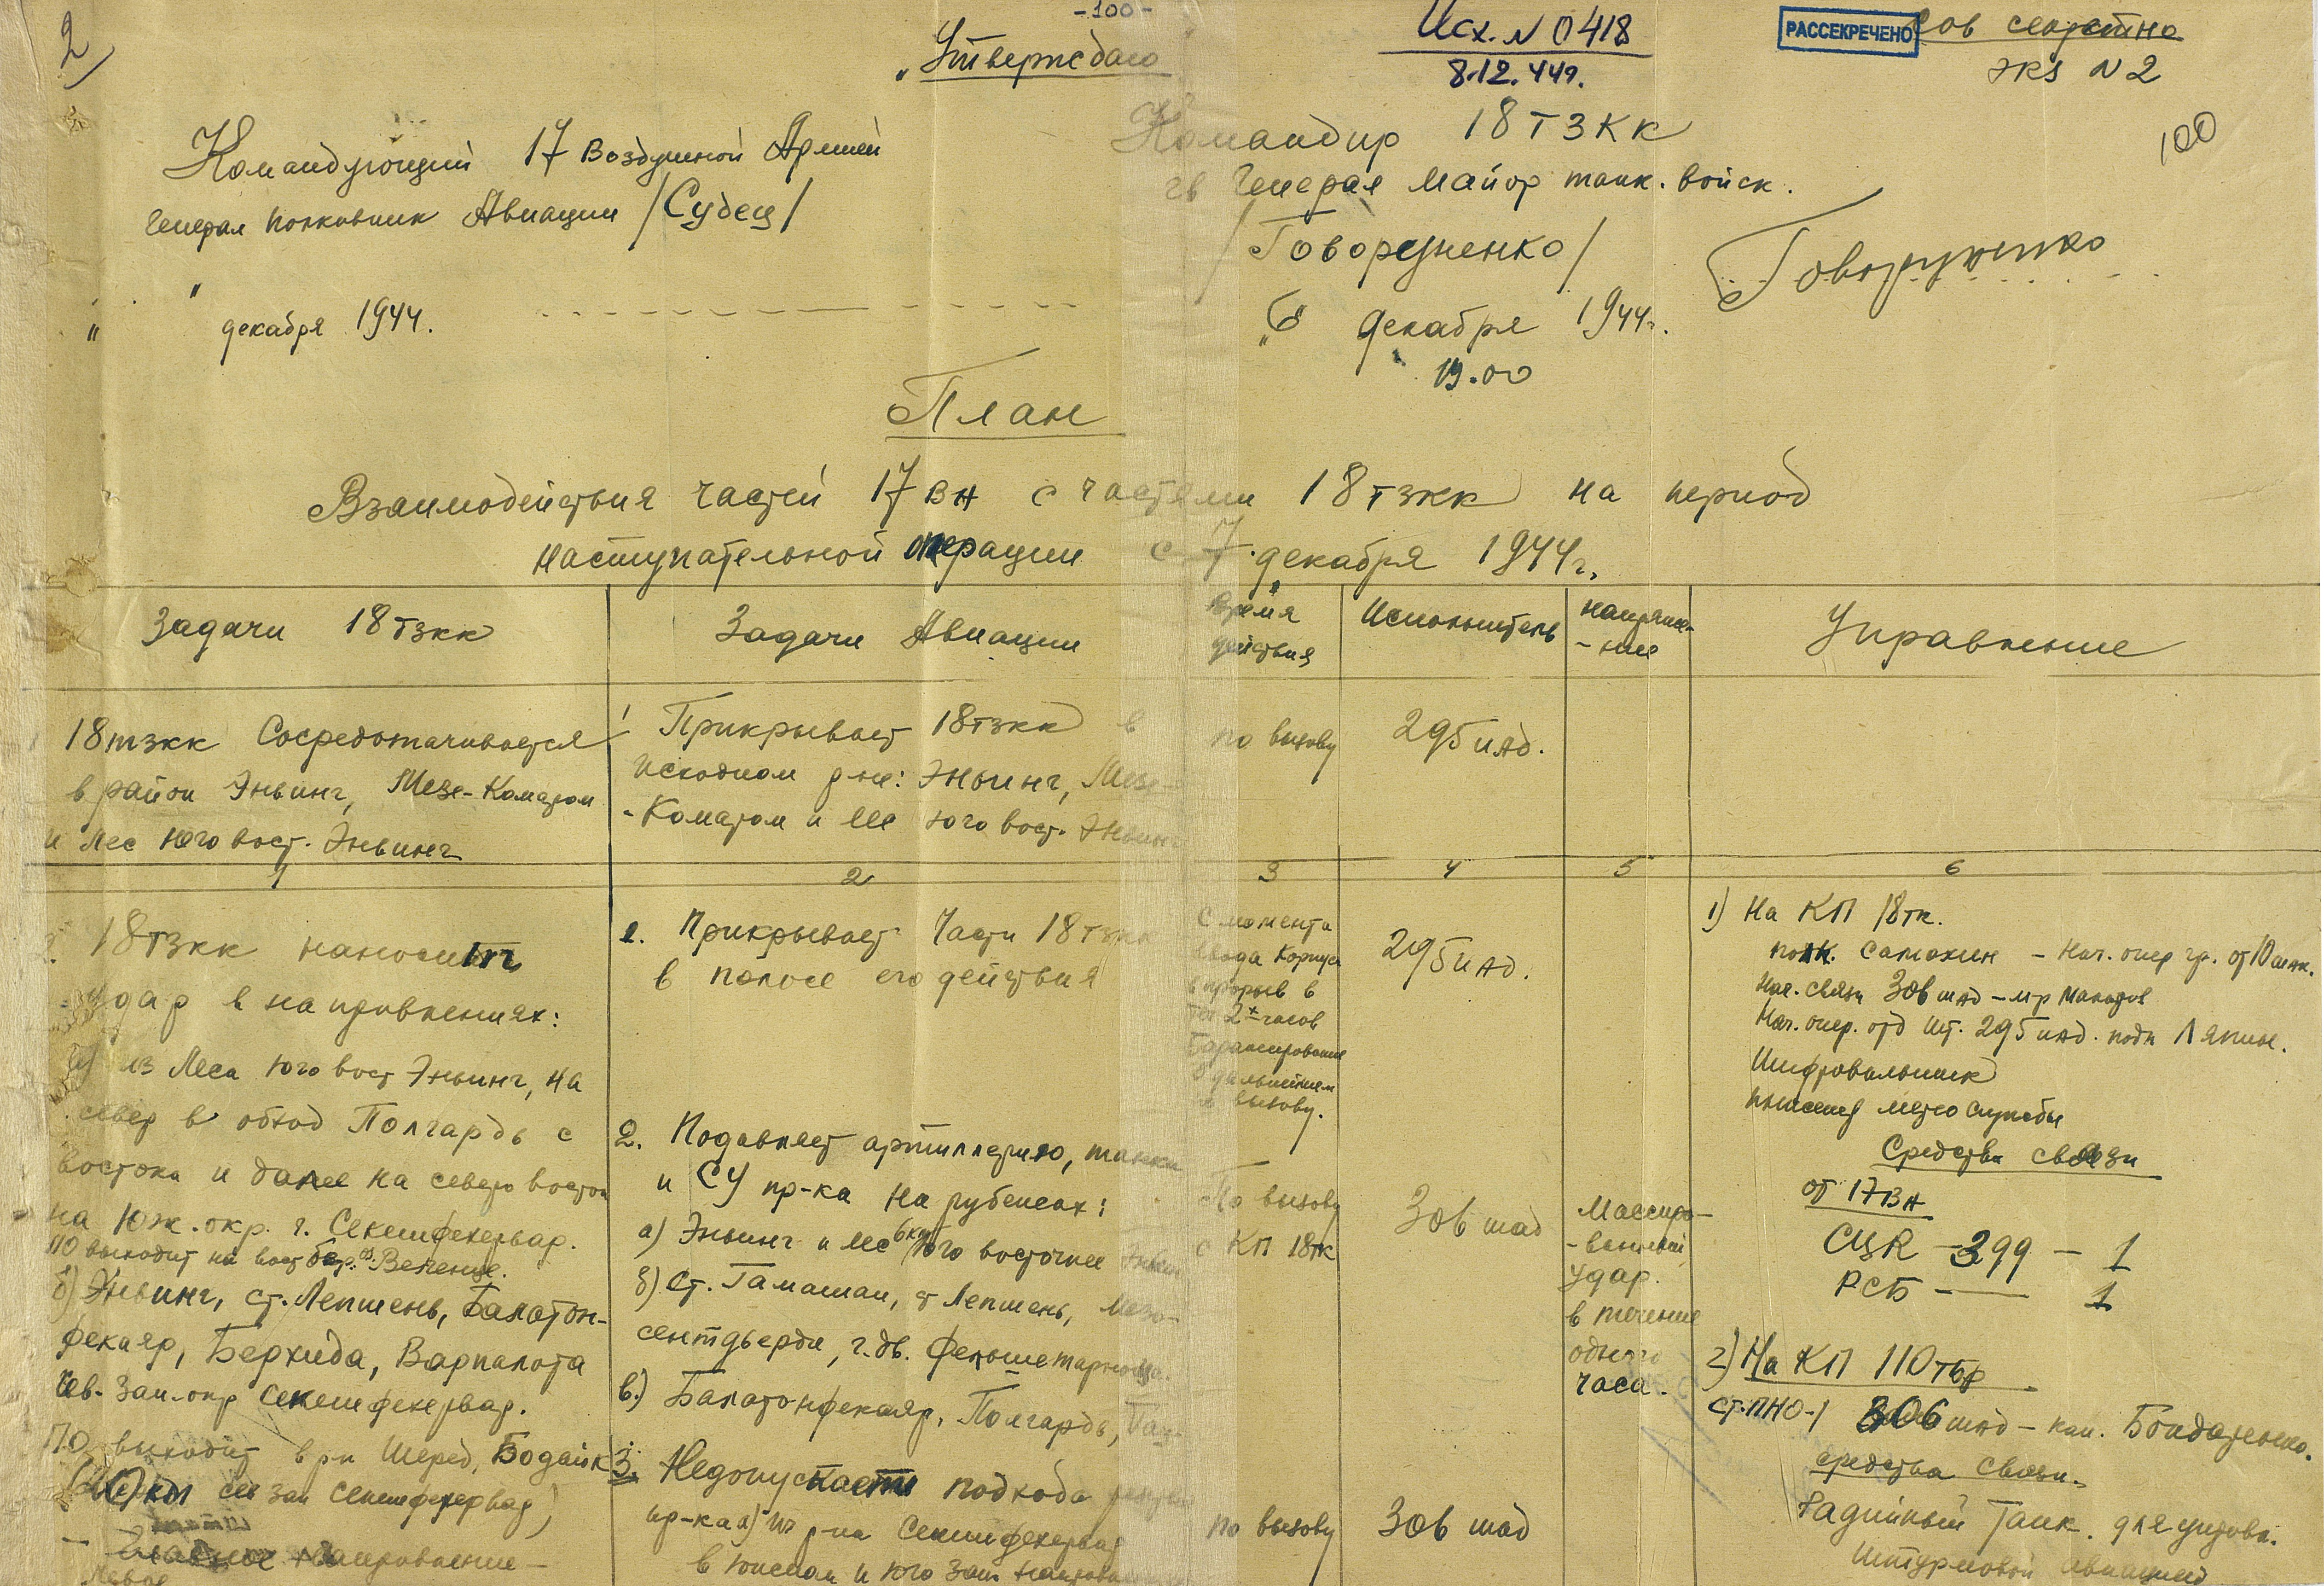 2
-100-
Исх. N 0418
8.12.44г.
РАССЕКРЕЧЕНО
Сов секретно
экз N 2
100
"Утверждаю
Командующий 17 Воздушной Армией
Генерал полковник Авиации /Судец/
" " декабря 1944.
Командир 18 ТЗКК
гв Генерал майор танк. войск.
/Говоруненко/
Говоруненко
"6" декабря 1944г.
19.00
План
Взаимодействия частей 17 ВА с частями 18 тзкк на период
наступательной операции с 7 декабря 1944г.
Задачи 18 тзкк
Задачи Авиации
Время
действия
Исполнитель
напряже-
-ние
Управление
18тзкк Сосредотачивается
в район Эньинг, Мезе-Коматом
и лес юго вост. Эньинг
1 Прикрывает 18тзкк в
исходном р-не: Эньинг, Мезе-
-Коматом и лес юго вост. Эньинг
по вызову
295 иад.
1
2
3
4
5
6
18тзкк наносит
удар в направлениях:
а) из Леса юго вост Эньинг, на
север в обход Полгардь с
востока и далее на северо восток
на Юж. окр. г. Секешфехервар.
ПО выходит на вост бер. оз. Веленце.
б) Эньинг, ст. Лепшень, Балатон-
фекаяр, Берхида, Варпалота
Сев. Зап. окр Секешфехервар.
ПО выходит в р-н Шеред, Бодайк
км сев зап Секешфехервар)
направление -
1. Прикрывает Части 18 тзкк
в полосе его действия
2. Подавляет артиллерию, танки
и СУ пр-ка на рубежах:
а) Эньинг и лес 6км юго восточнее Эньинг
б) ст. Гамашан, ст Лепшень, Мезе-
сентдьердь, г. дв.
в) Балатонфекаяр, Полгардь,
3. Недопускает подхода
пр-ка а) из р-на Секешфехервар
в южном и юго зап.
С момента
ввода Корпуса
в прорыв в
теч 2х часов
Барражирование
В дальнейшем
по вызову.
295 иад.
По вызову
с КП 18тк
306 шад
Массиро-
-ванный
удар.
в течение
одного
часа.
по вызову
306 шад
1) На КП 18тк.
полк. Самохин - Нач. опер гр. от 10 шак.
Нач. связи 306 шад - м-р
Нач. опер. отд шт. 295 иад. подп Ляпин.
Шифровальщик
метео службы
Средства связи
от 17 ВА
СЦR - 399 - 1
РСБ - — 1
2) На КП 110 тбр
ст. ПНО-1 306 шад - кап. Бондаренко.
средства связи.
Радийный Танк. для управл.
штурмовой авиацией